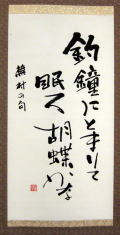 釣鐘にとまりて
眠る胡蝶かな
蕪村の句